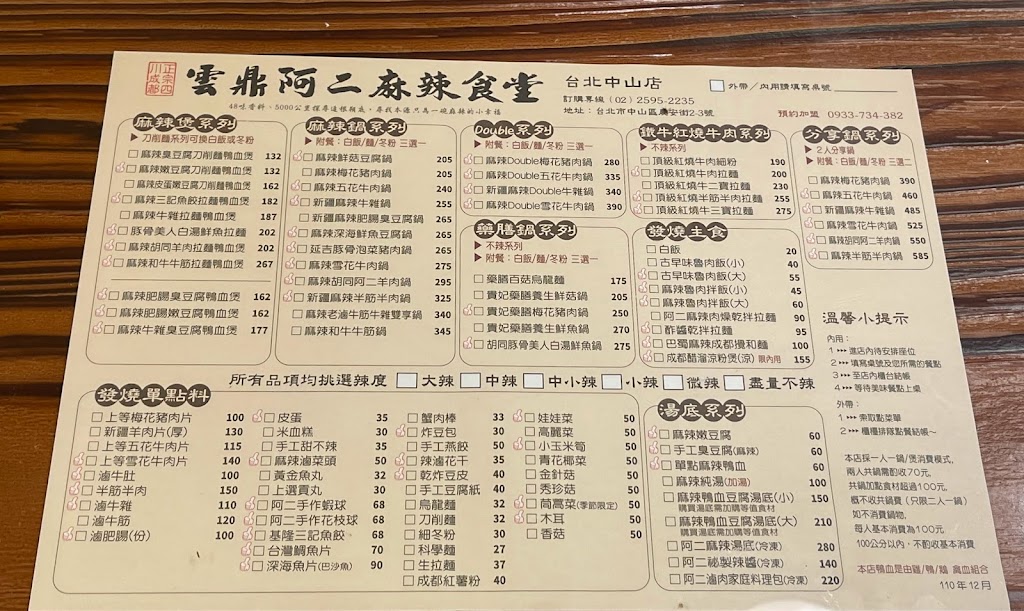 正宗四川成都
雲鼎阿二麻辣食堂
台北中山店
訂購專線（02）2595-2235
地址：台北市中山區農安街2-3號
外帶／內用請填寫桌號
預約加盟 0933-734-382
48味香料、5000公里探尋這根頭底、尋找本源只為一碗麻辣的小幸福
麻辣煲系列
▶ 刀削麵系列可換白飯或冬粉
麻辣臭豆腐刀削麵鴨血煲 132
麻辣嫩豆腐刀削麵鴨血煲 132
麻辣皮蛋嫩豆腐刀削麵鴨血煲 162
麻辣三記魚餃拉麵鴨血煲 182
麻辣牛雜拉麵鴨血煲 187
豚骨美人白湯鮮魚拉麵 202
麻辣胡同羊肉拉麵鴨血煲 202
麻辣和牛牛筋拉麵鴨血煲 267
麻辣肥腸臭豆腐鴨血煲 162
麻辣肥腸嫩豆腐鴨血煲 162
麻辣牛雜臭豆腐鴨血煲 177
麻辣鍋系列
▶ 附餐：白飯/麵/冬粉 三選一
麻辣鮮菇豆腐鍋 205
麻辣梅花豬肉鍋 205
麻辣五花牛肉鍋 240
新疆麻辣牛雜鍋 255
新疆麻辣肥腸臭豆腐鍋 265
麻辣深海鮮魚豆腐鍋 265
延吉豚骨泡菜豬肉鍋 265
麻辣雪花牛肉鍋 275
麻辣胡同阿二羊肉鍋 295
新疆麻辣半筋半肉鍋 325
麻辣老滷牛筋牛雜雙享鍋 340
麻辣和牛牛筋鍋 345
Double系列
▶ 附餐：白飯/麵/冬粉 三選一
麻辣Double梅花豬肉鍋 280
麻辣Double五花牛肉鍋 335
新疆麻辣Double牛雜鍋 340
麻辣Double雪花牛肉鍋 390
藥膳鍋系列
▶ 不辣系列
▶ 附餐：白飯/麵/冬粉 三選一
藥膳百菇烏龍麵 175
貴妃藥膳養生鮮菇鍋 205
貴妃藥膳梅花豬肉鍋 250
貴妃藥膳養生鮮魚鍋 270
胡同豚骨美人白湯鮮魚鍋 275
鐵牛紅燒牛肉系列
▶ 不辣系列
頂級紅燒牛肉細粉 190
頂級紅燒牛肉拉麵 200
頂級紅燒牛二寶拉麵 230
頂級紅燒半筋半肉拉麵 255
頂級紅燒牛三寶拉麵 275
發燒主食
白飯 20
古早味魯肉飯(小) 40
古早味魯肉飯(大) 55
麻辣魯肉拌飯(小) 45
麻辣魯肉拌飯(大) 60
阿二麻辣肉燥乾拌拉麵 90
酢醬乾拌拉麵 95
巴蜀麻辣成都攪和麵 100
成都醋溜涼粉煲(涼) 限內用 155
分享鍋系列
▶ 2人分享鍋
▶ 附餐：白飯/麵/冬粉 三選二
麻辣梅花豬肉鍋 390
麻辣五花牛肉鍋 460
新疆麻辣牛雜鍋 485
麻辣雪花牛肉鍋 525
麻辣胡同阿二羊肉鍋 550
麻辣半筋半肉鍋 585
所有品項均挑選辣度 大辣 中辣 中小辣 小辣 微辣 盡量不辣
發燒單點料
上等梅花豬肉片 100
新疆羊肉片(厚) 130
上等五花牛肉片 115
上等雪花牛肉片 140
滷牛肚 100
半筋半肉 150
滷牛雜 110
滷牛筋 120
滷肥腸(份) 100
皮蛋 35
米血糕 30
手工甜不辣 35
麻辣滷菜頭 50
黃金魚丸 32
上選貢丸 30
阿二手作蝦球 68
阿二手作花枝球 68
基隆三記魚餃 68
台灣鯛魚片 70
深海魚片(巴沙魚) 90
蟹肉棒 33
炸豆包 30
手工燕餃 50
辣滷花干 35
乾炸豆皮 40
手工豆腐紙 40
烏龍麵 32
刀削麵 32
細冬粉 30
科學麵 27
生拉麵 37
成都紅薯粉 40
娃娃菜 50
高麗菜 50
小玉米筍 50
青花椰菜 50
金針菇 50
秀珍菇 50
茼蒿菜(季節限定) 50
木耳 50
香菇 50
湯底系列
麻辣嫩豆腐 60
手工臭豆腐(麻辣) 60
單點麻辣鴨血 60
麻辣純湯(加湯) 100
麻辣鴨血豆腐湯底(小) 150
購買湯底需加購等值食材
麻辣鴨血豆腐湯底(大) 210
購買湯底需加購等值食材
阿二麻辣湯底(冷凍) 280
阿二祕製辣醬(冷凍) 140
阿二滷肉家庭料理包(冷凍) 220
溫馨小提示
內用：
1 ▸▸▸ 進店內待安排座位
2 ▸▸▸ 填寫桌號及您所需的餐點
3 ▸▸▸ 至店內櫃台結帳
4 ▸▸▸ 等待美味餐點上桌
外帶：
1 ▸▸▸ 索取點菜單
2 ▸▸▸ 櫃檯排隊點餐結帳～
本店採一人一鍋/煲消費模式，
兩人共鍋需酌收70元，
共鍋加點食材超過100元，
概不收共鍋費（只限二人一鍋）
如不消費鍋物，
每人基本消費為100元
100公分以內，不酌收基本消費
本店鴨血是由雞/鴨/鵝 禽血組合
110年12月